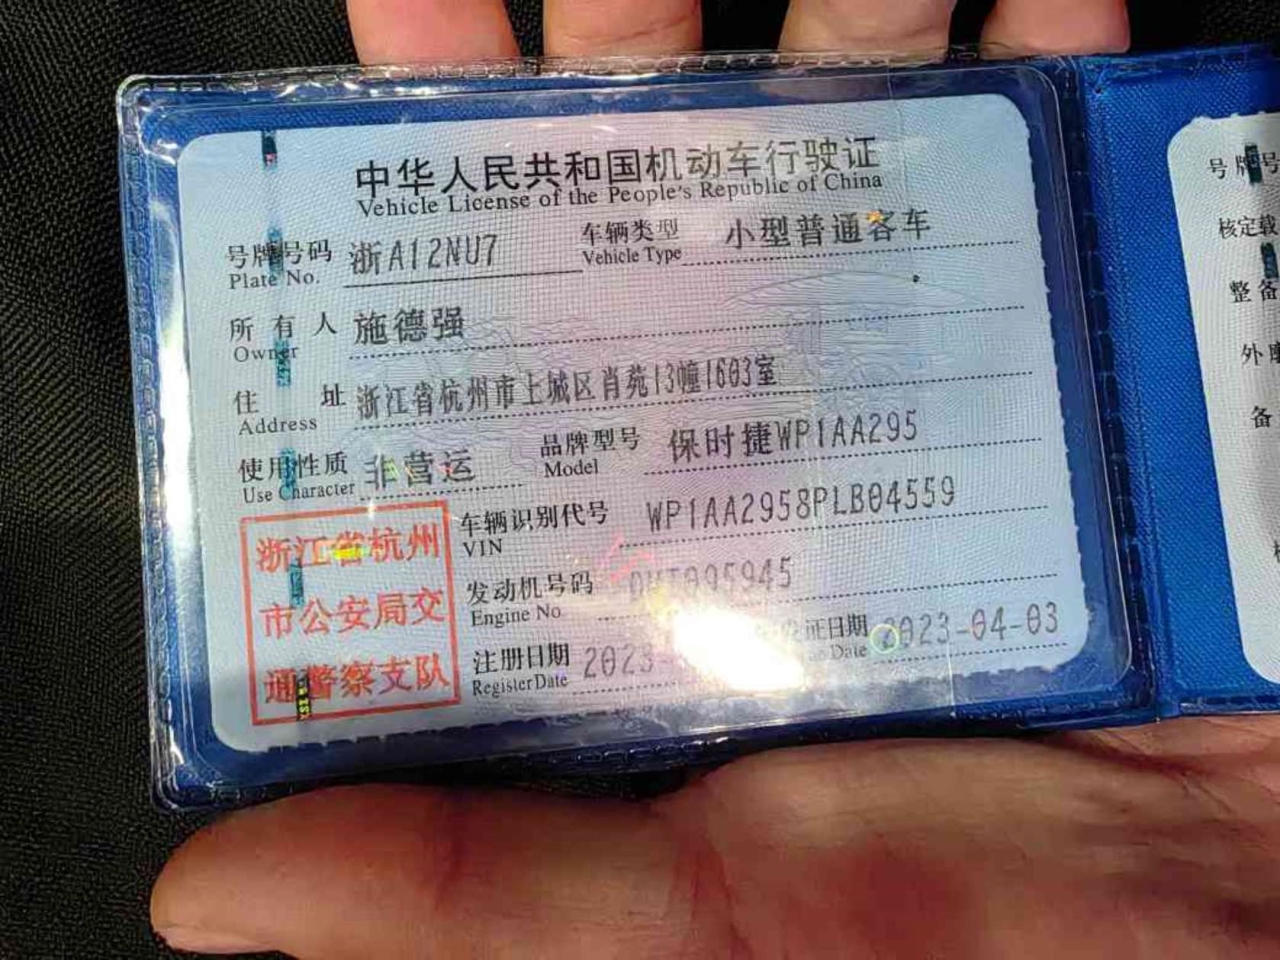 中华人民共和国机动车行驶证
Vehicle License of the People's Republic of China
号牌号码 浙A12NU7 车辆类型 小型普通客车
Plate No. Vehicle Type
所有人 施德强
Owner
住址 浙江省杭州市上城区肖苑13幢1603室
Address
使用性质 非营运 品牌型号 保时捷WP1AA295
Use Character Model
浙江省杭州
市公安局交
通警察支队
车辆识别代号 WP1AA2958PLB04559
VIN
发动机号码 005945
Engine No.
注册日期 2023- 证日期 2023-04-03
Register Date Date
号牌号
核定载
整备
外
备